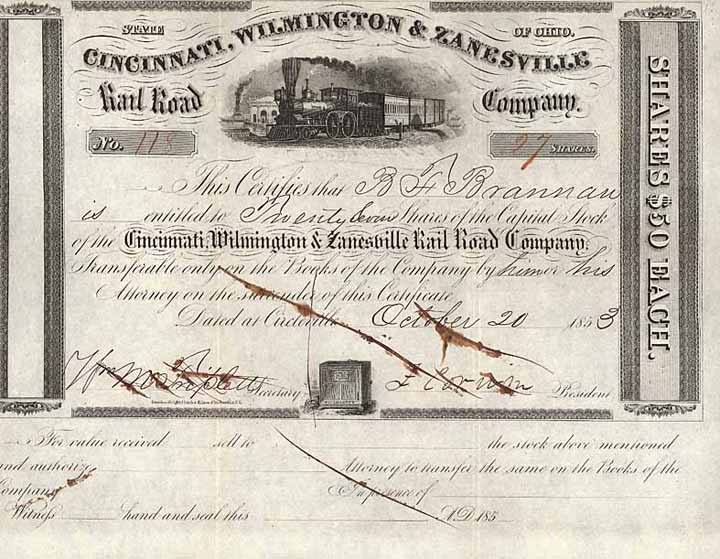 STATE OF OHIO.
CINCINNATI, WILMINGTON & ZANESVILLE
Rail Road Company.
No. 115 27 SHARES.
This Certifies that B F Brannan
is entitled to Twenty Seven Shares of the Capital Stock
of the Cincinnati, Wilmington & Zanesville Rail Road Company.
Transferable only on the Books of the Company by him or his
Attorney on the surrender of this Certificate
Dated at Circleville October 20 1853
Secretary President
SHARES $50 EACH.
For value received sell to the stock above mentioned
and authorize Attorney to transfer the same on the Books of the
Company In presence of
Witness hand and seal this A.D. 185